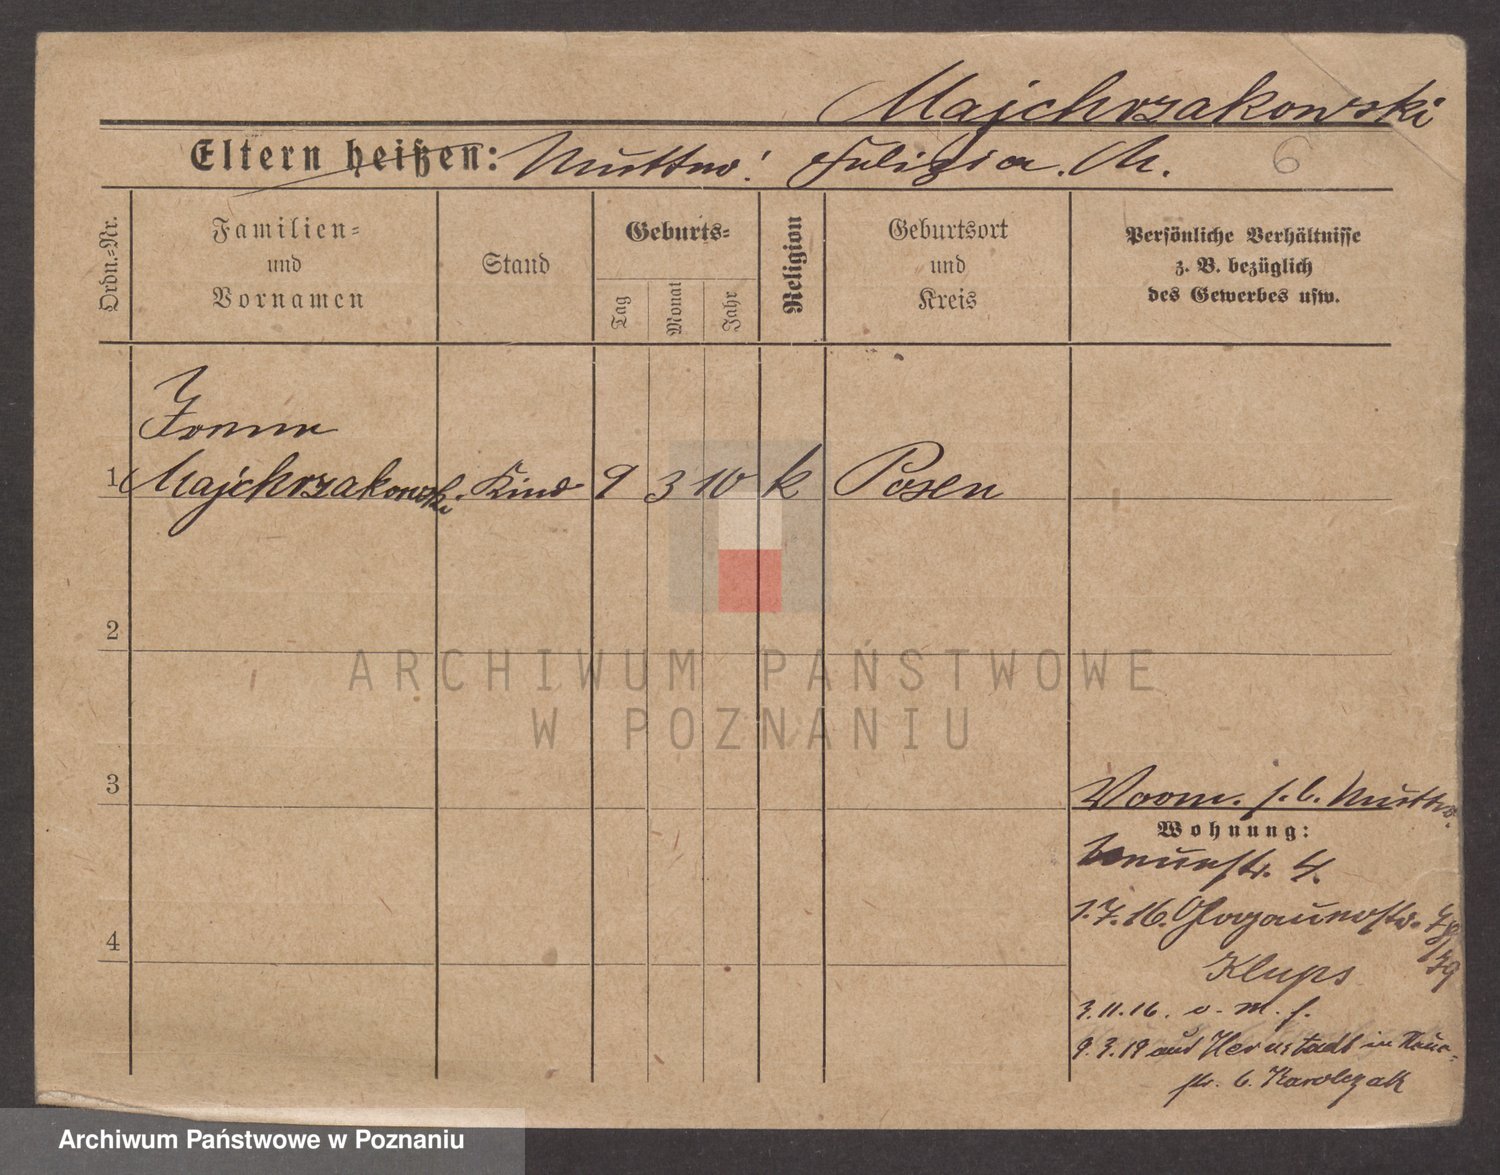 Majchrzakowski
Eltern heißen: Mutter: Felizia M. 6
Ordn.-Nr.
Familien-
und
Vornamen
Stand
Geburts-
Tag
Monat
Jahr
Religion
Geburtsort
und
Kreis
Persönliche Verhältnisse
z. B. bezüglich
des Gewerbes usw.
1 Majchrzakowski Kind 9 3 10 k Posen
2
ARCHIWUM PAŃSTWOWE
W POZNANIU
3
Vorm. s. b. Mutter.
Wohnung:
4.
1.7.16. Glogauerstr.
4
Klups
3.11.16. v. m. f.
9.3.19 aus Herrstadt in
str. b. Karolczak
Archiwum Państwowe w Poznaniu